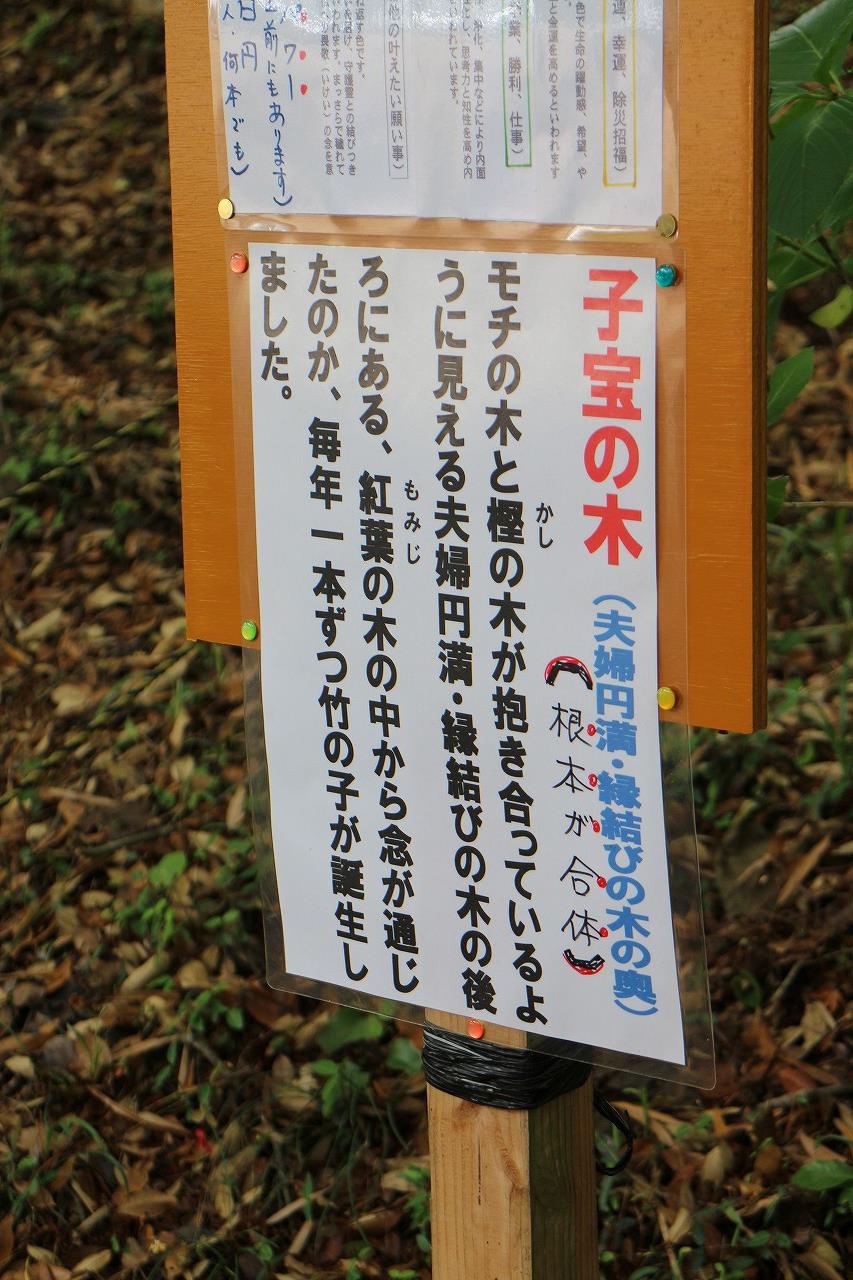 運、幸運、除災招福）
色で生命の躍動感、希望、や
と金運を高めるといわれます
業、勝利、仕事）
化、集中などにより内面
し、思考力と知性を高め内
われています。
他の叶えたい願い事）
返す色です。
を避け、守護霊との結びつき
われます。まっさらで穢れて
畏敬（いけい）の念を意
ワー
前にもあります）
円
人・何本でも）
子宝の木（夫婦円満・縁結びの木の奥）
（根本が合体）
かし
モチの木と樫の木が抱き合っているよ
うに見える夫婦円満・縁結びの木の後
もみじ
ろにある、紅葉の木の中から念が通じ
たのか、毎年一本ずつ竹の子が誕生し
ました。